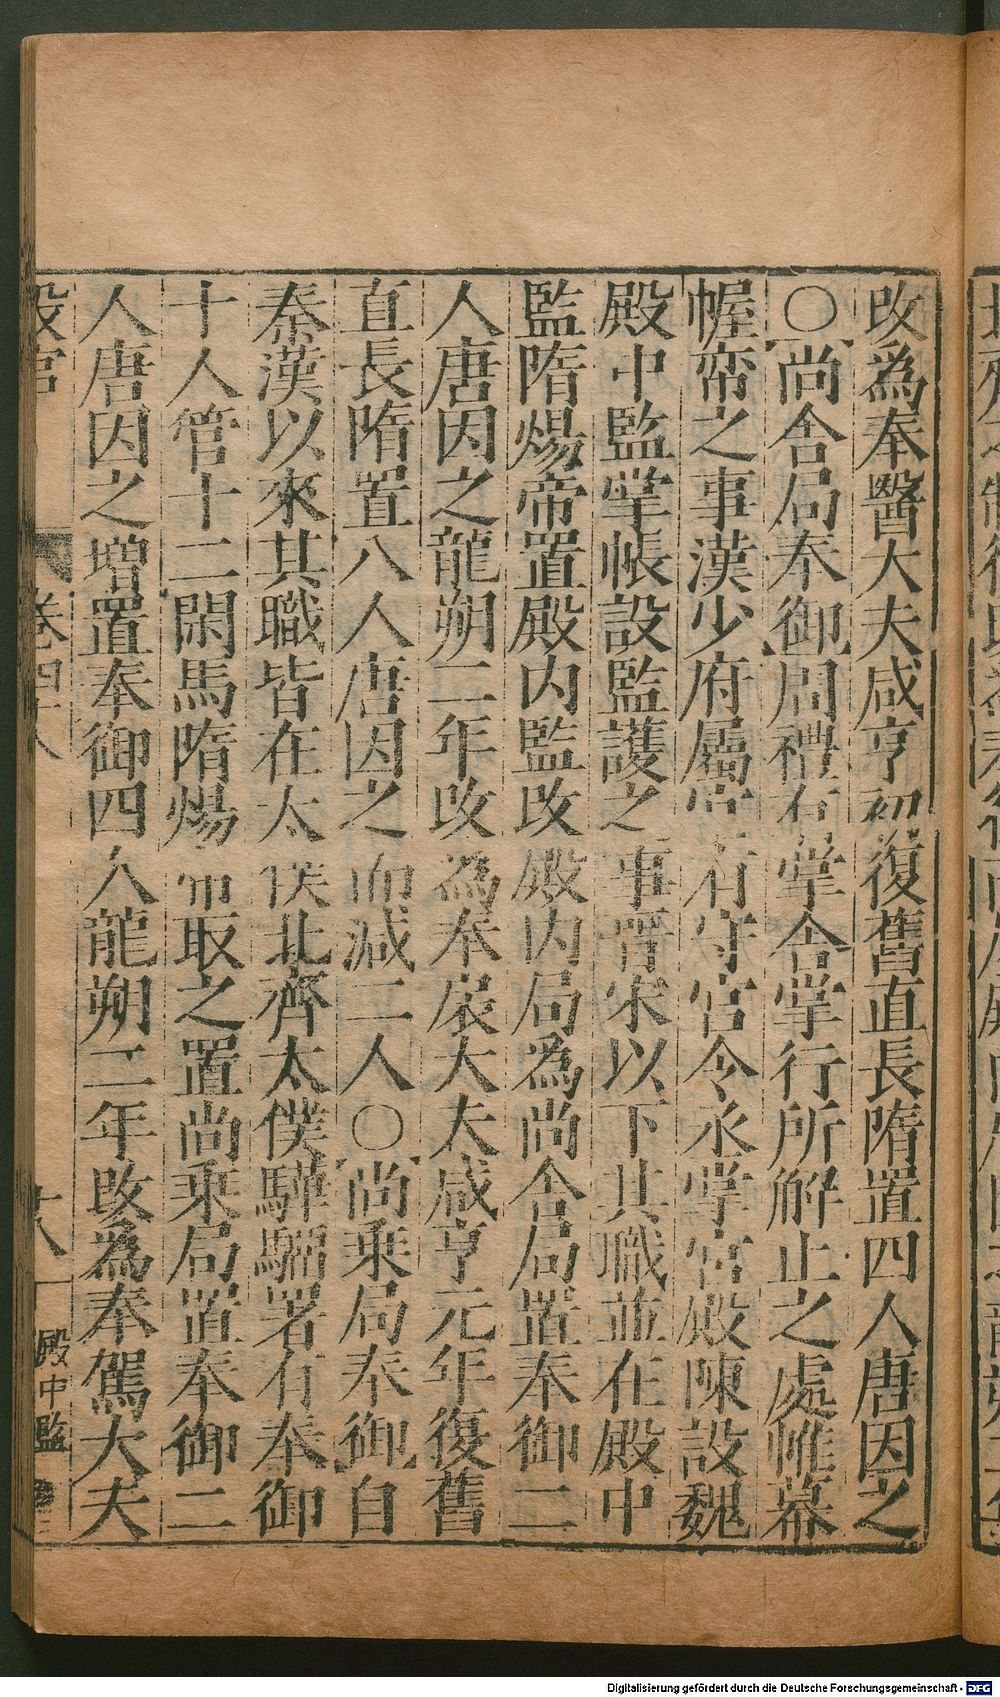 改為奉醫大夫咸亨初復舊直長隋置四人唐因之
○尚舍局奉御周禮有掌舍掌行所解止之處帷幕
幄帟之事漢少府屬官有守宮令丞掌宮殿陳設魏
殿中監掌帳設監護之事晉宋以下其職並在殿中
監隋煬帝置殿内監改殿内局為尚舍局置奉御二
人唐因之龍朔二年改為奉扆大夫咸亨元年復舊
直長隋置八人唐因之而減二人○尚乗局奉御自
秦漢以來其職皆在太僕北齊太僕驊騮署有奉御
十人管十二閑馬隋煬帝取之置尚乗局置奉御二
人唐因之增置奉御四人龍朔二年改為奉駕大夫
設官
卷四十八
十八
殿中監
Digitalisierung gefördert durch die Deutsche Forschungsgemeinschaft - DFG